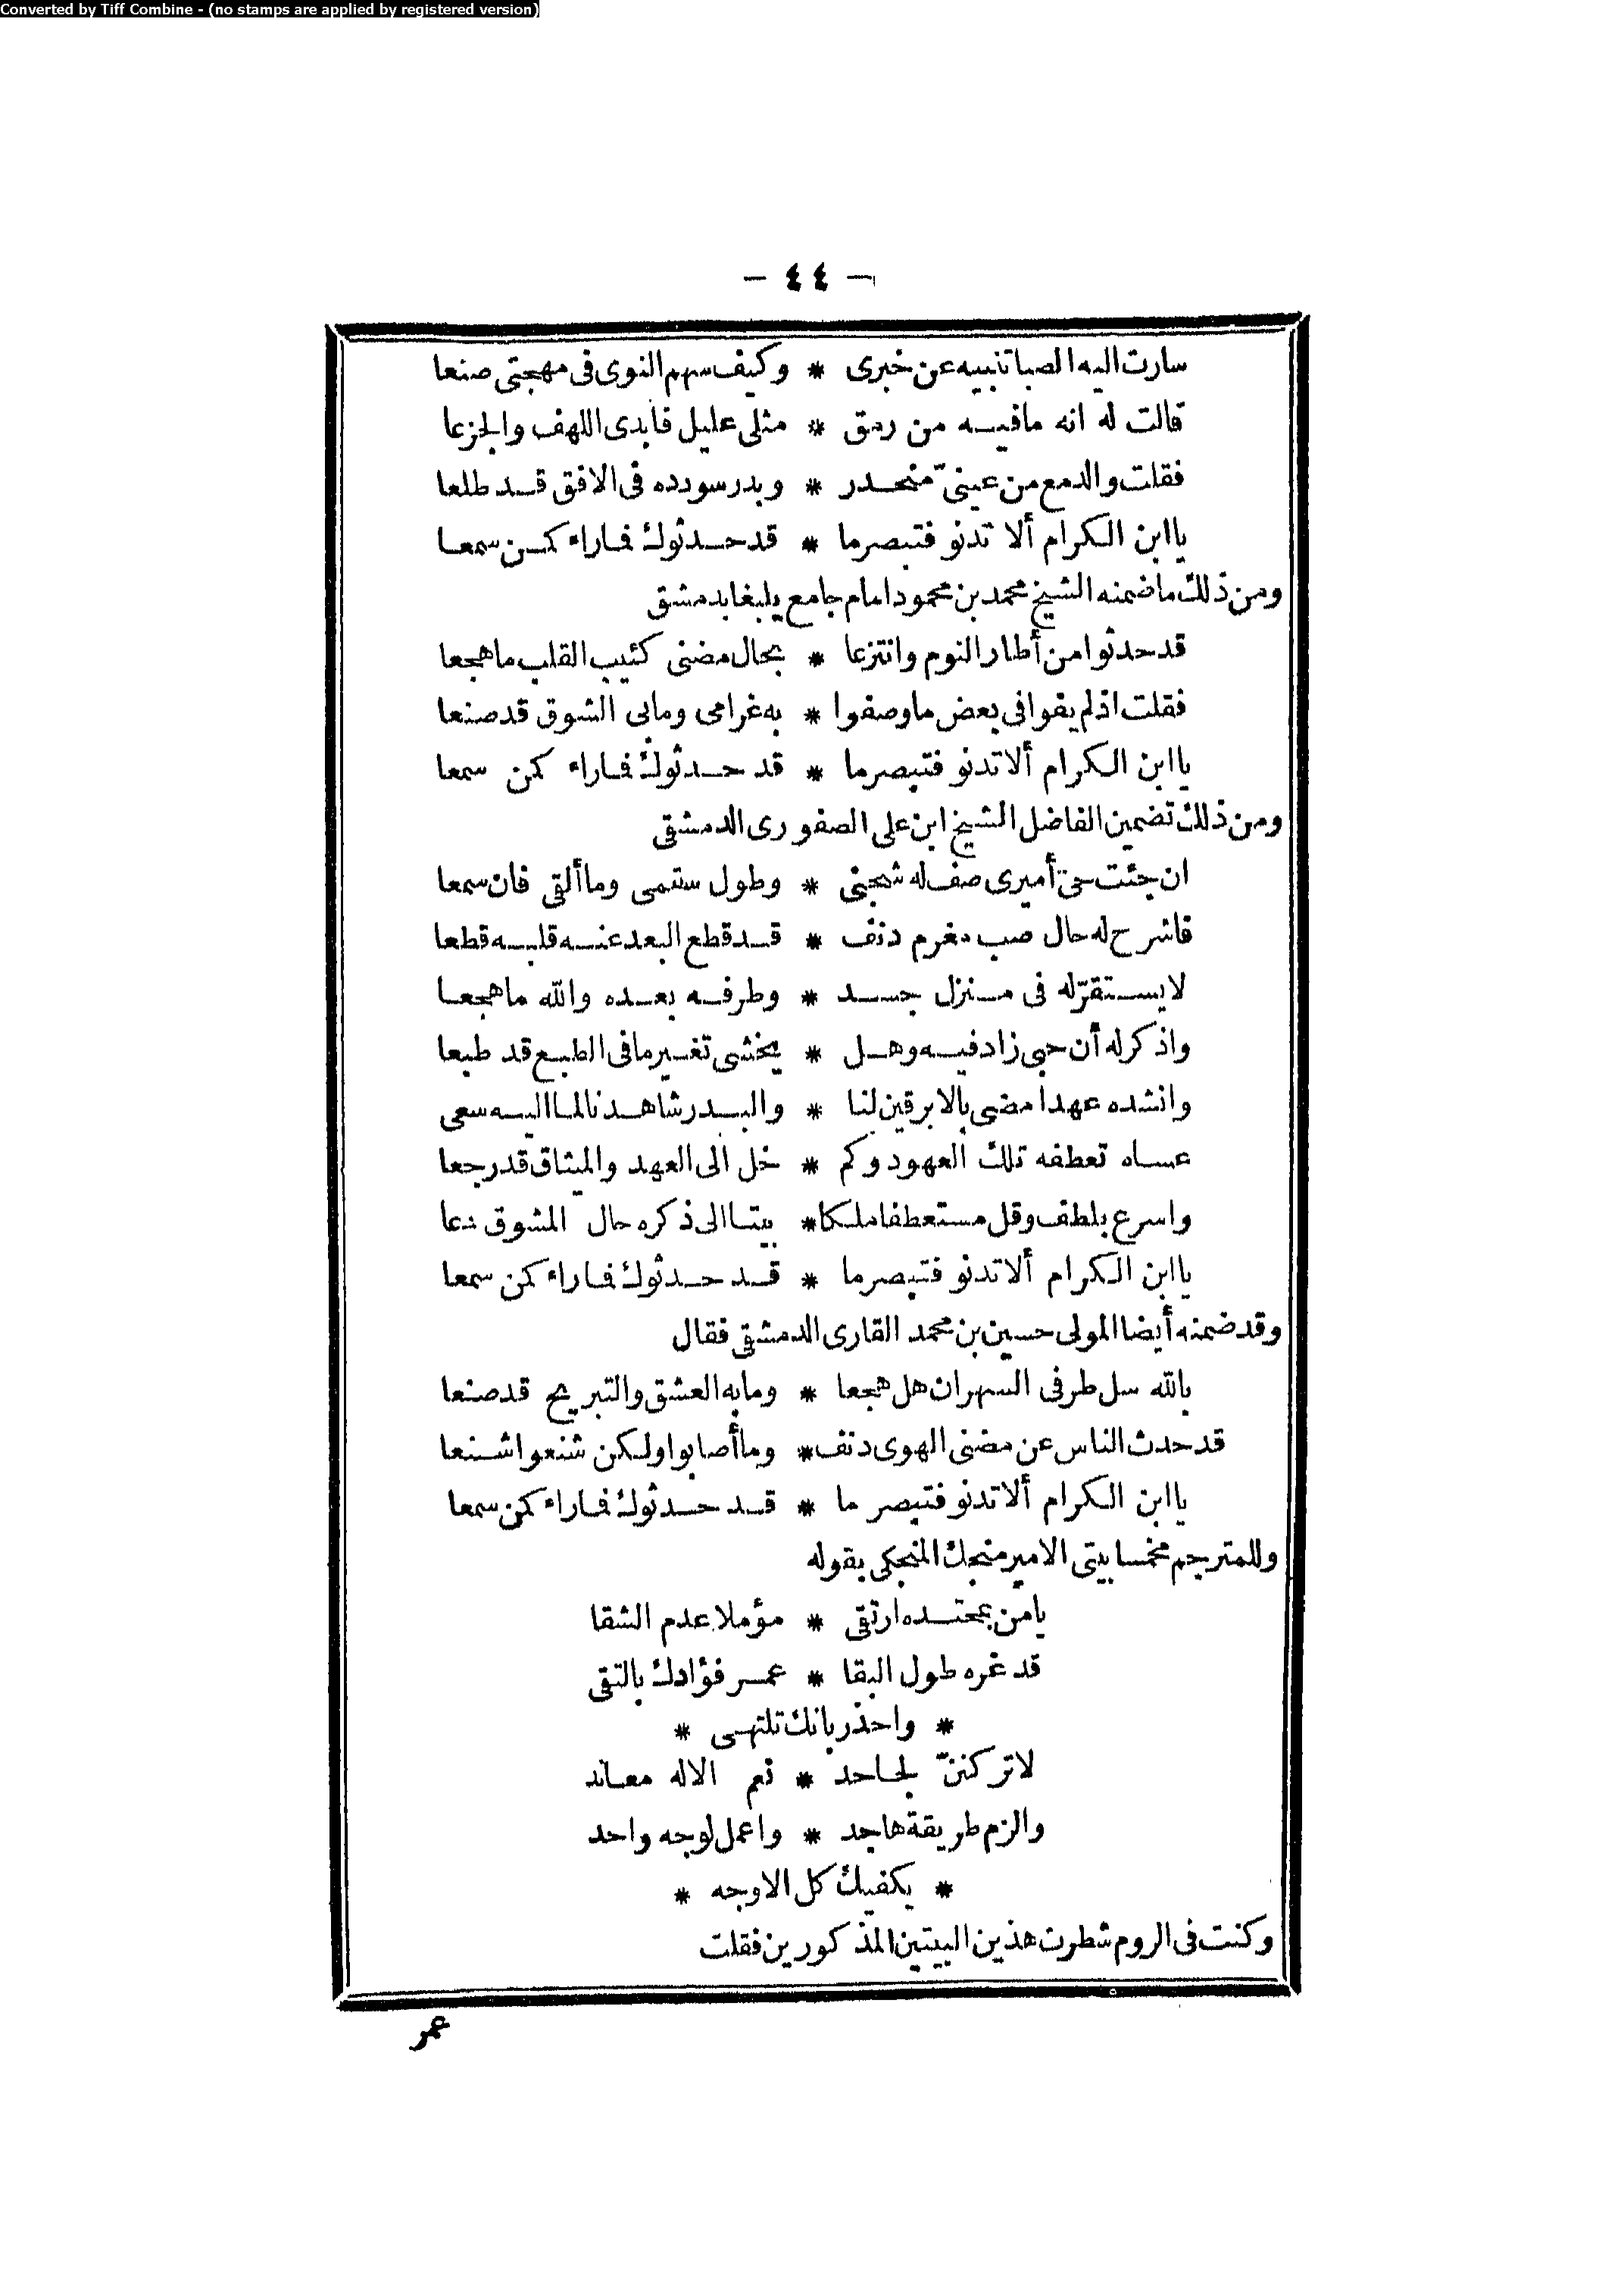 Converted by Tiff Combine - (no stamps are applied by registered version)
- ٤٤ -
سارت اليه الصبا تنبيه عن خبرى * وكيف سهم النوى فى مهجتى صنعا
قالت له انه مافيه من رمق * مثلى عليل فأبدى اللهف والجزعا
فقلت والدمع من عينىّ منحدر * وبدر سودده فى الافق قد طلعا
ياابن الكرام ألا تدنو فتبصرما * قد حدثوك فماراء كمن سمعا
ومن ذلك ماضمنه الشيخ محمد بن محمود امام جامع يلبغا بدمشق
قد حدثوا من أطار النوم وانتزعا * بحال مضنى كئيب القلب ماهجعا
فقلت اذلم يفوا فى بعض ماوصفوا * به غرامى ومابى الشوق قد صنعا
ياابن الكرام ألاتدنو فتبصرما * قد حدثوك فماراء كمن سمعا
ومن ذلك تضمين الفاضل الشيخ ابن على الصفورى الدمشقى
ان جئت حىّ أميرى صف له شجنى * وطول سقمى وماألقى فان سمعا
فاشرح له حال صب مغرم دنف * قد قطع البعد عنه قلبه قطعا
لايستقرّله فى منزل جسد * وطرفه بعده والله ماهجعا
واذكرله أن حبى زاد فيه وهل * يخشى تغيرمافى الطبع قد طبعا
وانشده عهدا مضى بالابرقين لنا * والبدر شاهدنا لما اليه سعى
عساه تعطفه تلك العهود وكم * خل الى العهد والميثاق قدرجعا
واسرع بلطف وقل مستعطفا ملكا * بيتا الى ذكره حال المشوق دعا
ياابن الكرام ألاتدنو فتبصرما * قد حدثوك فماراء كمن سمعا
وقد ضمنه أيضا المولى حسين بن محمد القارى الدمشقى فقال
بالله سل طرفى السهران هل هجعا * ومابه العشق والتبريح قدصنعا
قد حدث الناس عن مضنى الهوى دنف * وماأصابوا ولكن شنعوا شنعا
ياابن الكرام ألاتدنو فتبصر ما * قد حدثوك فماراء كمن سمعا
وللمترجم مخمسا بيتى الامير منجك المنجكى بقوله
يامن بمحتده ارتقى * مؤملا عدم الشقا
قد غره طول البقا * عمر فؤادك بالتقى
* واحذر بانك تلتهى *
لاتركننّ لجاحد * نعم الاله معاند
والزم طريقة هاجد * واعمل لوجه واحد
* يكفيك كل الاوجه *
وكنت فى الروم شطرت هذين البيتين المذكورين فقلت
عمر